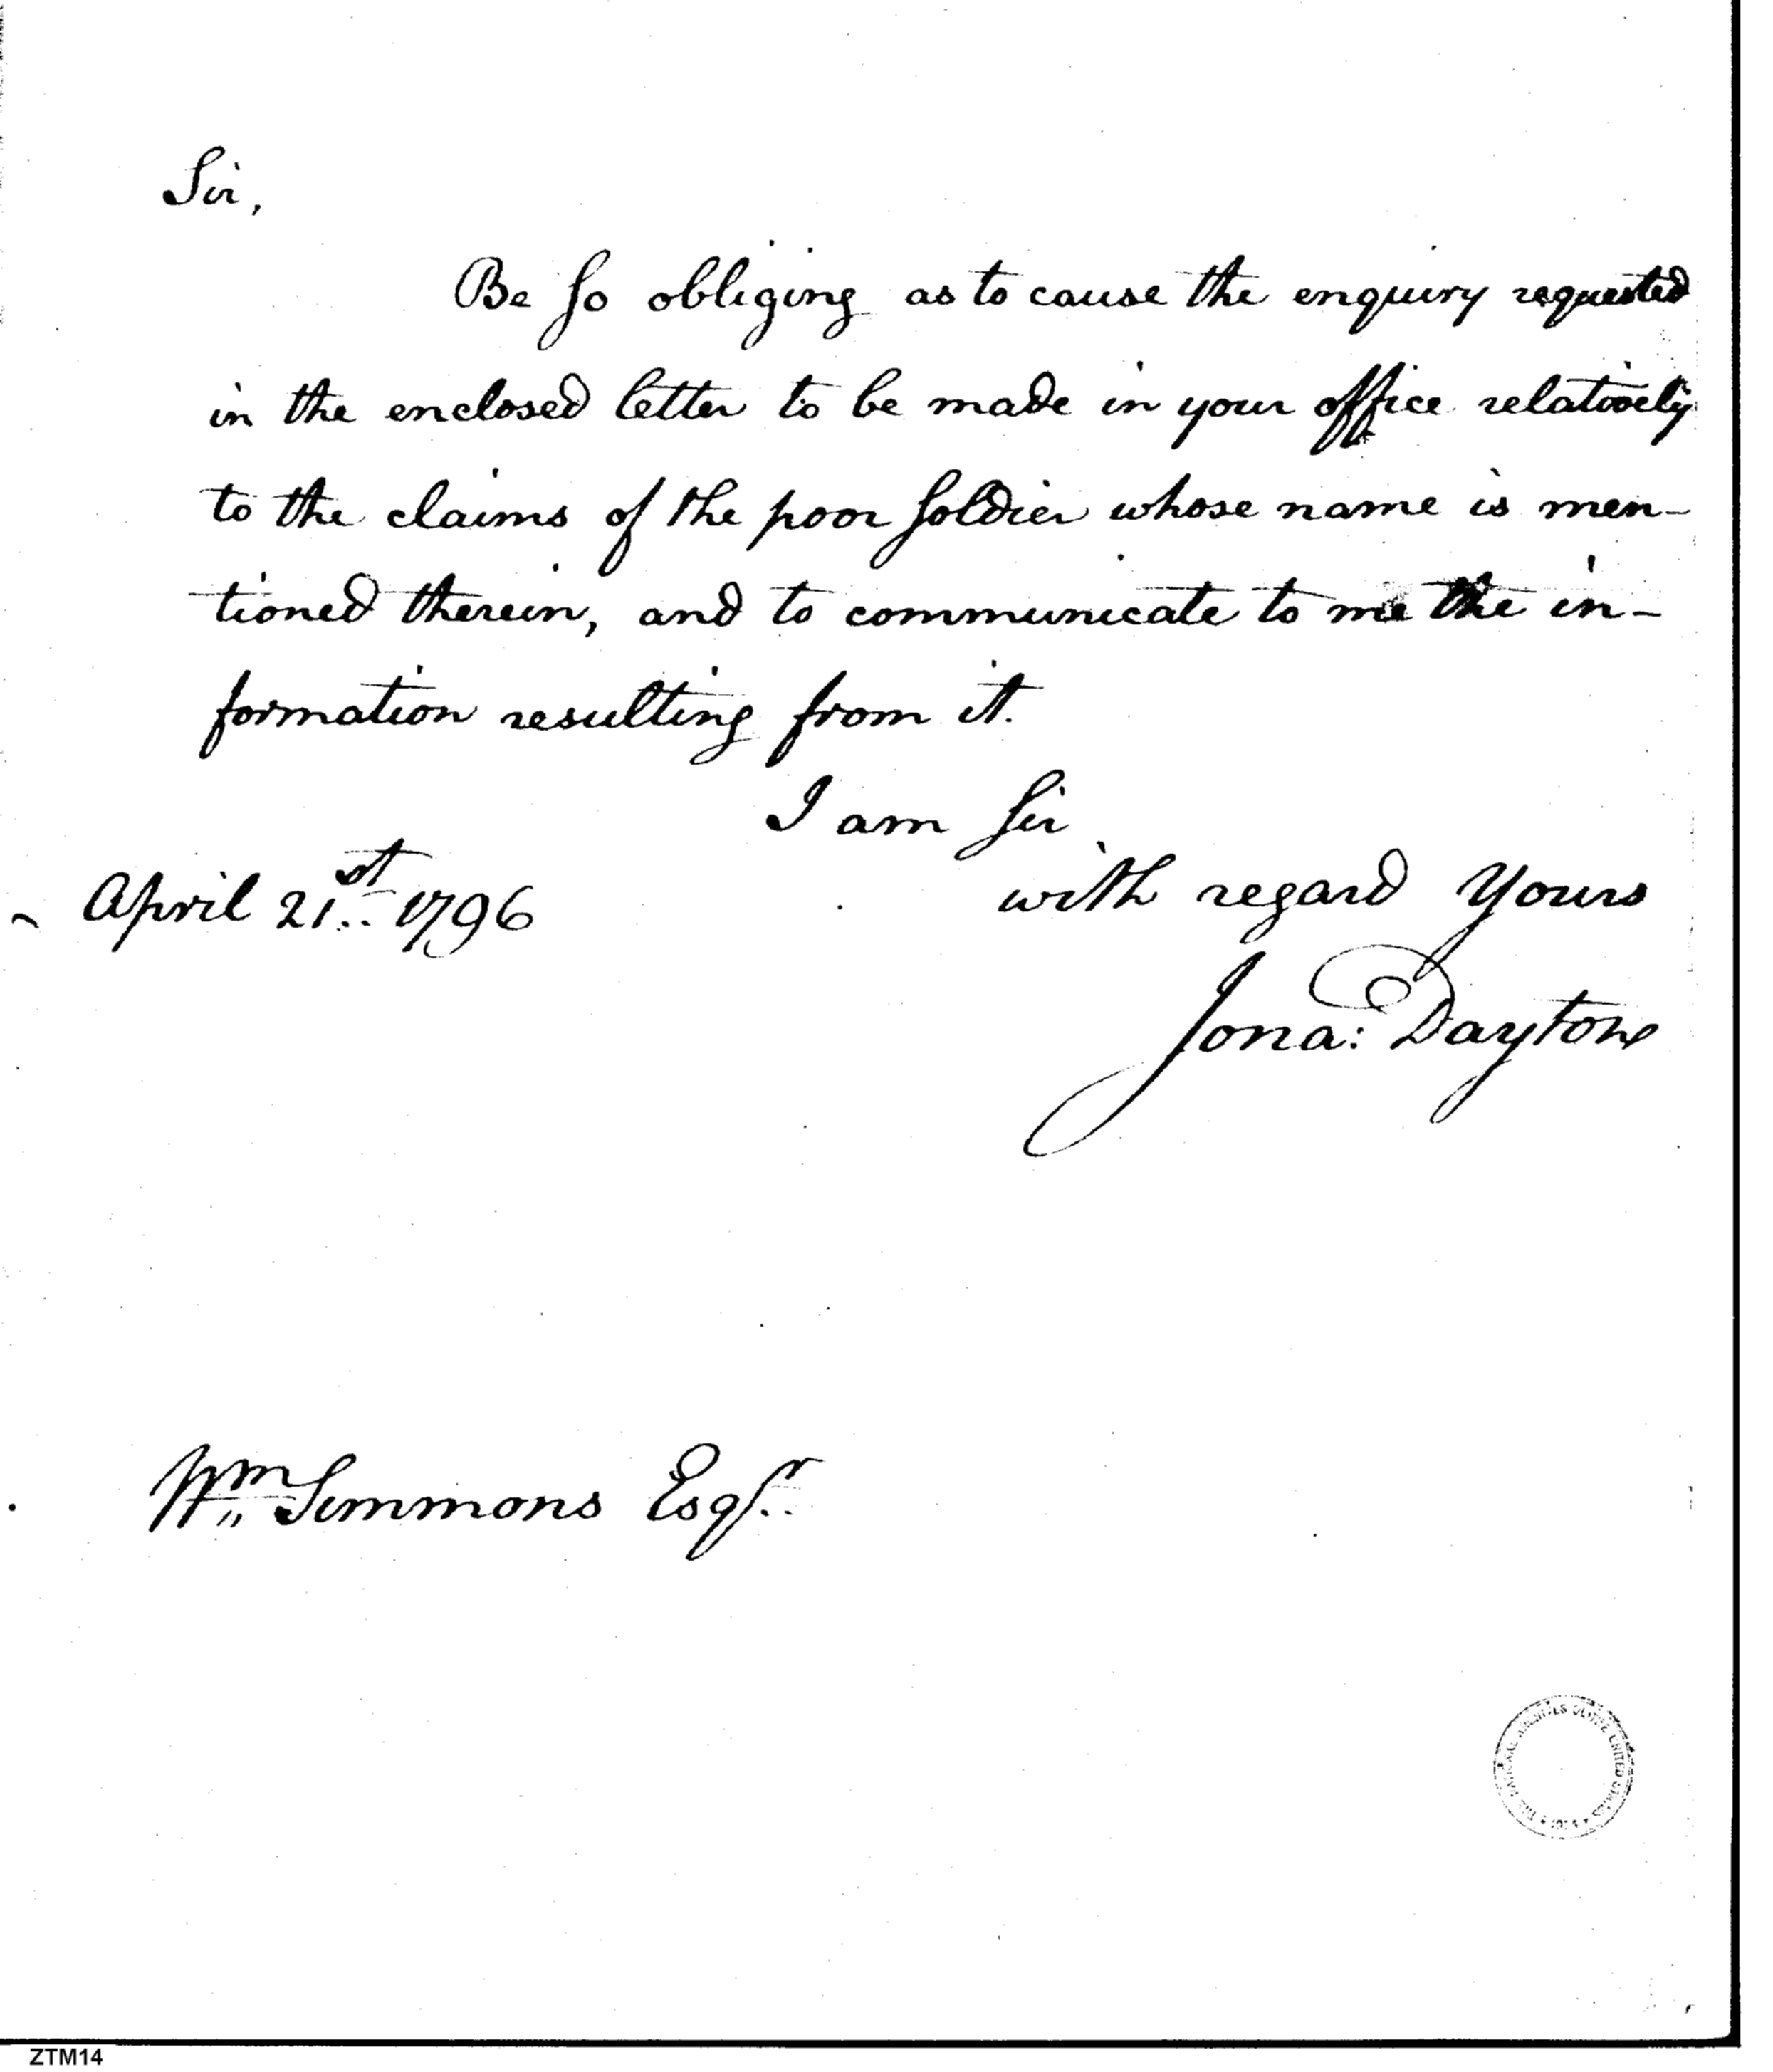 Sir,
Be so obliging as to cause the enquiry requested
in the enclosed letter to be made in your office relatively
to the claims of the poor soldier whose name is men-
tioned therein, and to communicate to me the in-
formation resulting from it.
I am Sir
with regard Yours
April 21st 1796
Jona: Dayton
Wm Simmons Esqr
THE NATIONAL ARCHIVES OF THE UNITED STATES
ZTM14